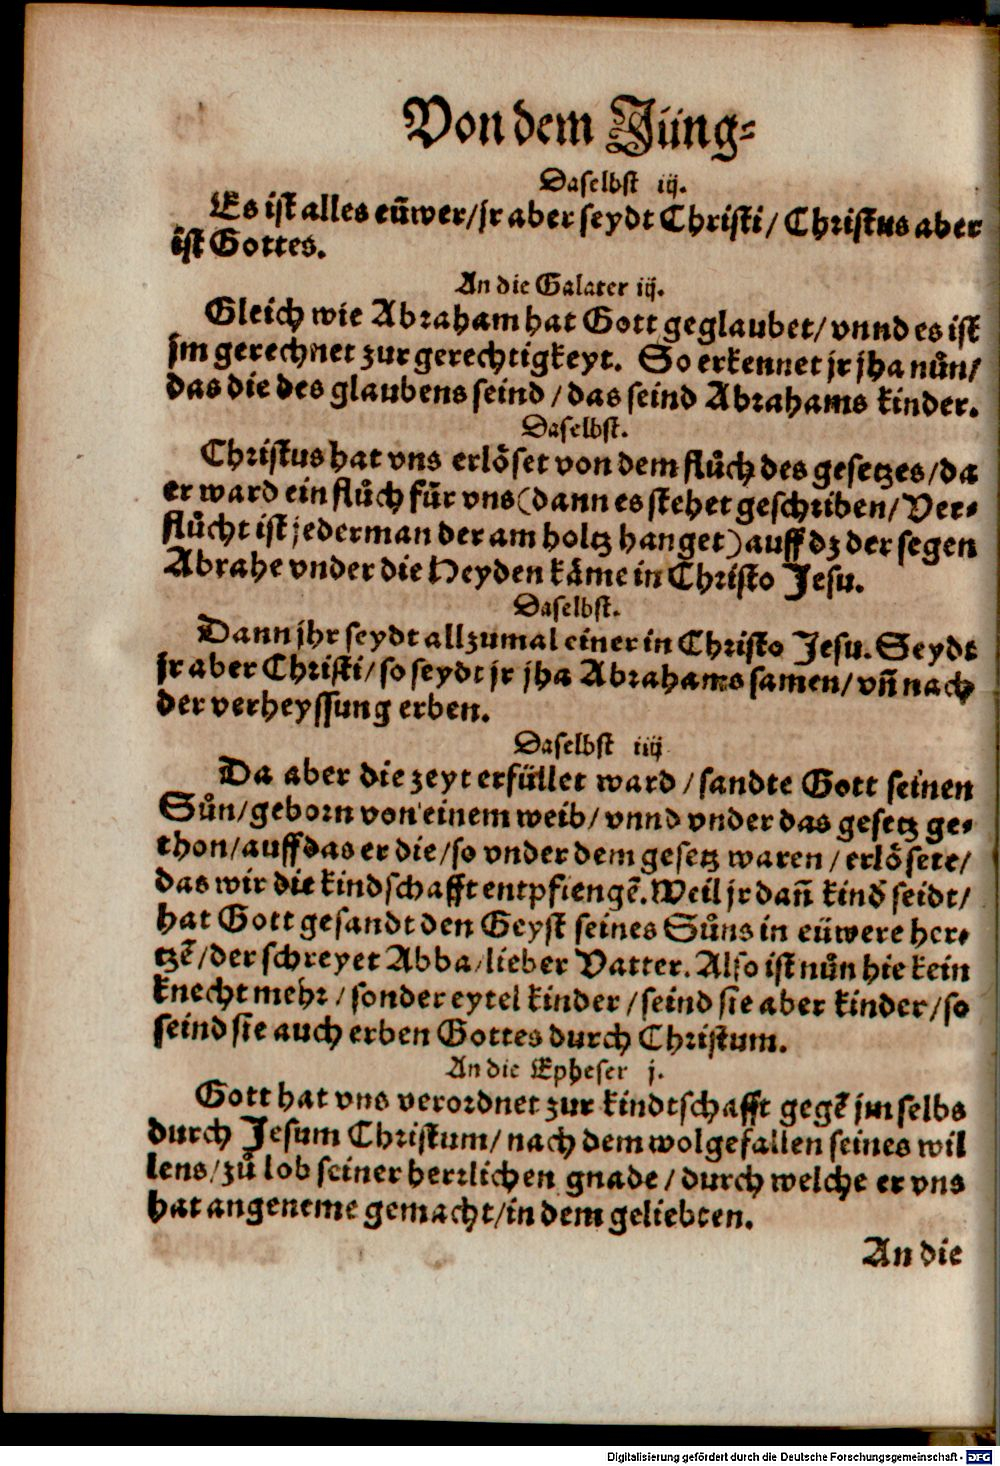 Von dem Jüng-
Daselbst iij.
Es ist alles eüwer/jr aber seydt Christi/ Christus aber
ist Gottes.
An die Galater iij.
Gleich wie Abraham hat Gott geglaubet/ vnnd es ist
jm gerechnet zur gerechtigkeyt. So erkennet jr jha nůn/
das die des glaubens seind/das seind Abrahams kinder.
Daselbst.
Christus hat vns erlöset von dem flůch des gesetzes/da
er ward ein flůch für vns(dann es stehet geschriben/ Ver-
flůcht ist jederman der am holtz hanget)auff dz der segen
Abrahe vnder die Heyden käme in Christo Jesu.
Daselbst.
Dann jhr seydt allzumal einer in Christo Jesu. Seydt
jr aber Christi/ so seydt jr jha Abrahams samen/ vñ nach
der verheyssung erben.
Daselbst iiij
Da aber die zeyt erfüllet ward/sandte Gott seinen
Sůn/geborn von einem weib/ vnnd vnder das gesetz ge-
thon/auff das er die/so vnder dem gesetz waren/erlösete/
das wir die kindschafft entpfiengē. Weil jr dañ kind seidt/
hat Gott gesandt den Geyst seines Sůns in eüwere her-
tzē/der schreyet Abba/lieber Vatter. Also ist nůn hie kein
knecht mehr/sonder eytel kinder/seind sie aber kinder/so
seind sie auch erben Gottes durch Christum.
An die Epheser j.
Gott hat vns verordnet zur kindtschafft gegē jm selbs
durch Jesum Christum/ nach dem wolgefallen seines wil
lens/zů lob seiner herrlichen gnade/durch welche er vns
hat angeneme gemacht/in dem geliebten.
An die
Digitalisierung gefördert durch die Deutsche Forschungsgemeinschaft - DFG